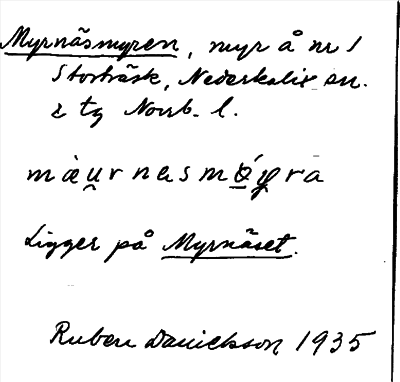 Myrnäsmyren, myr å nr 1
Storträsk, Nederkalix sn.
& tg Norrb. l.
mæ̀u̯rnesmǿy̯ra
Ligger på Myrnäset.
Ruben Danielsson 1935